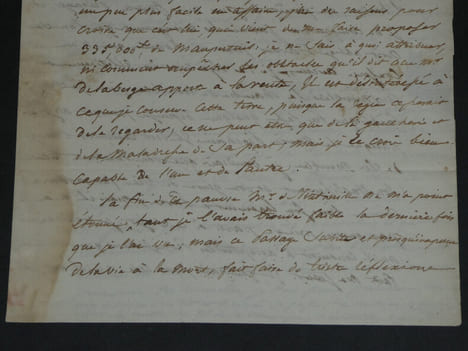 un peu plus facile en affaire, plus de raisons pour
croire que c'est lui qui vient de me faire proposer
335. 800.tt de Maupertuis; je ne sais à qui attribuer,
ni comment empêcher les obstacles qu'il dit que Mr
Delaberge apporte à la vente, il est déterminé à
ce que je conserve cette terre, puisque la régie
de la regarder, ce ne peut être que de la gaucherie et
de la maladresse de sa part, mais je le crois bien
capable de l'un et de l'autre.
La fin de ce pauvre Mr. de ne m'a point
étonné, tant je l'avais trouvé faible la dernière fois
que je l'ai vu; mais ce passage subit et presque
de la vie à la mort, fait faire de tristes réflexions